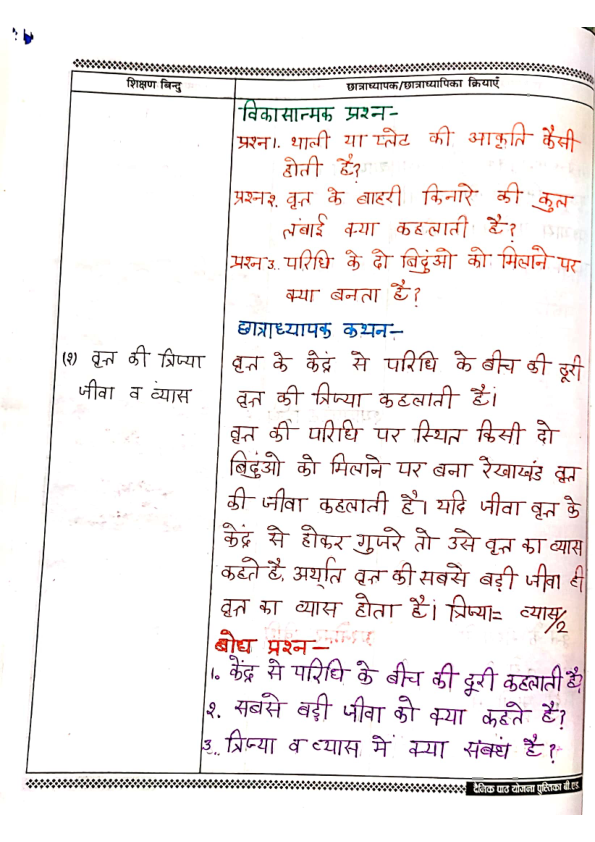 शिक्षण बिन्दु
छात्राध्यापक/छात्राध्यापिका क्रियाएँ
विकासात्मक प्रश्न-
प्रश्न1. थाली या प्लेट की आकृति कैसी
होती है?
प्रश्न२. वृत्त के बाहरी किनारे की कुल
लंबाई क्या कहलाती है?
प्रश्न3. परिधि के दो बिदुंओ को मिलाने पर
क्या बनता है?
छात्राध्यापक कथन-
(२) वृत्त की त्रिज्या
जीवा व व्यास
वृत्त के केंद्र से परिधि के बीच की दूरी
वृत्त की त्रिज्या कहलाती है।
वृत्त की परिधि पर स्थित किसी दो
बिदुंओ को मिलाने पर बना रेखाखंड वृत्त
की जीवा कहलाती है। यदि जीवा वृत्त के
केंद्र से होकर गुजरे तो उसे वृत्त का व्यास
कहते है, अर्थात वृत्त की सबसे बड़ी जीवा ही
वृत्त का व्यास होता है। त्रिज्या= व्यास/2
बोध प्रश्न-
1. केंद्र से परिधि के बीच की दूरी कहलाती है?
२. सबसे बड़ी जीवा को क्या कहते है?
3. त्रिज्या व व्यास में क्या संबंध है?
दैनिक पाठ योजना पुस्तिका बी.एड.